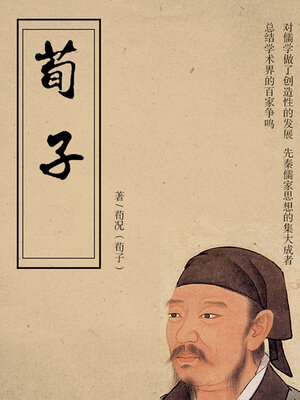 荀子
著/荀况（荀子）
对儒学做了创造性的发展 先秦儒家思想的集大成者
总结学术界的百家争鸣